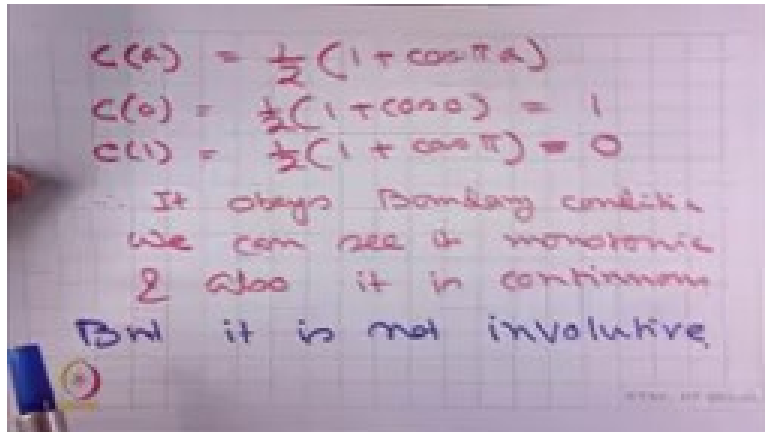 C(a) = 1/2 (1 + cos π a)
C(0) = 1/2 (1 + cos 0) = 1
C(1) = 1/2 (1 + cos π) = 0
∴ It obeys Boundary conditi
We can see it monotonic
& also it is continuous
But it is not involutive.